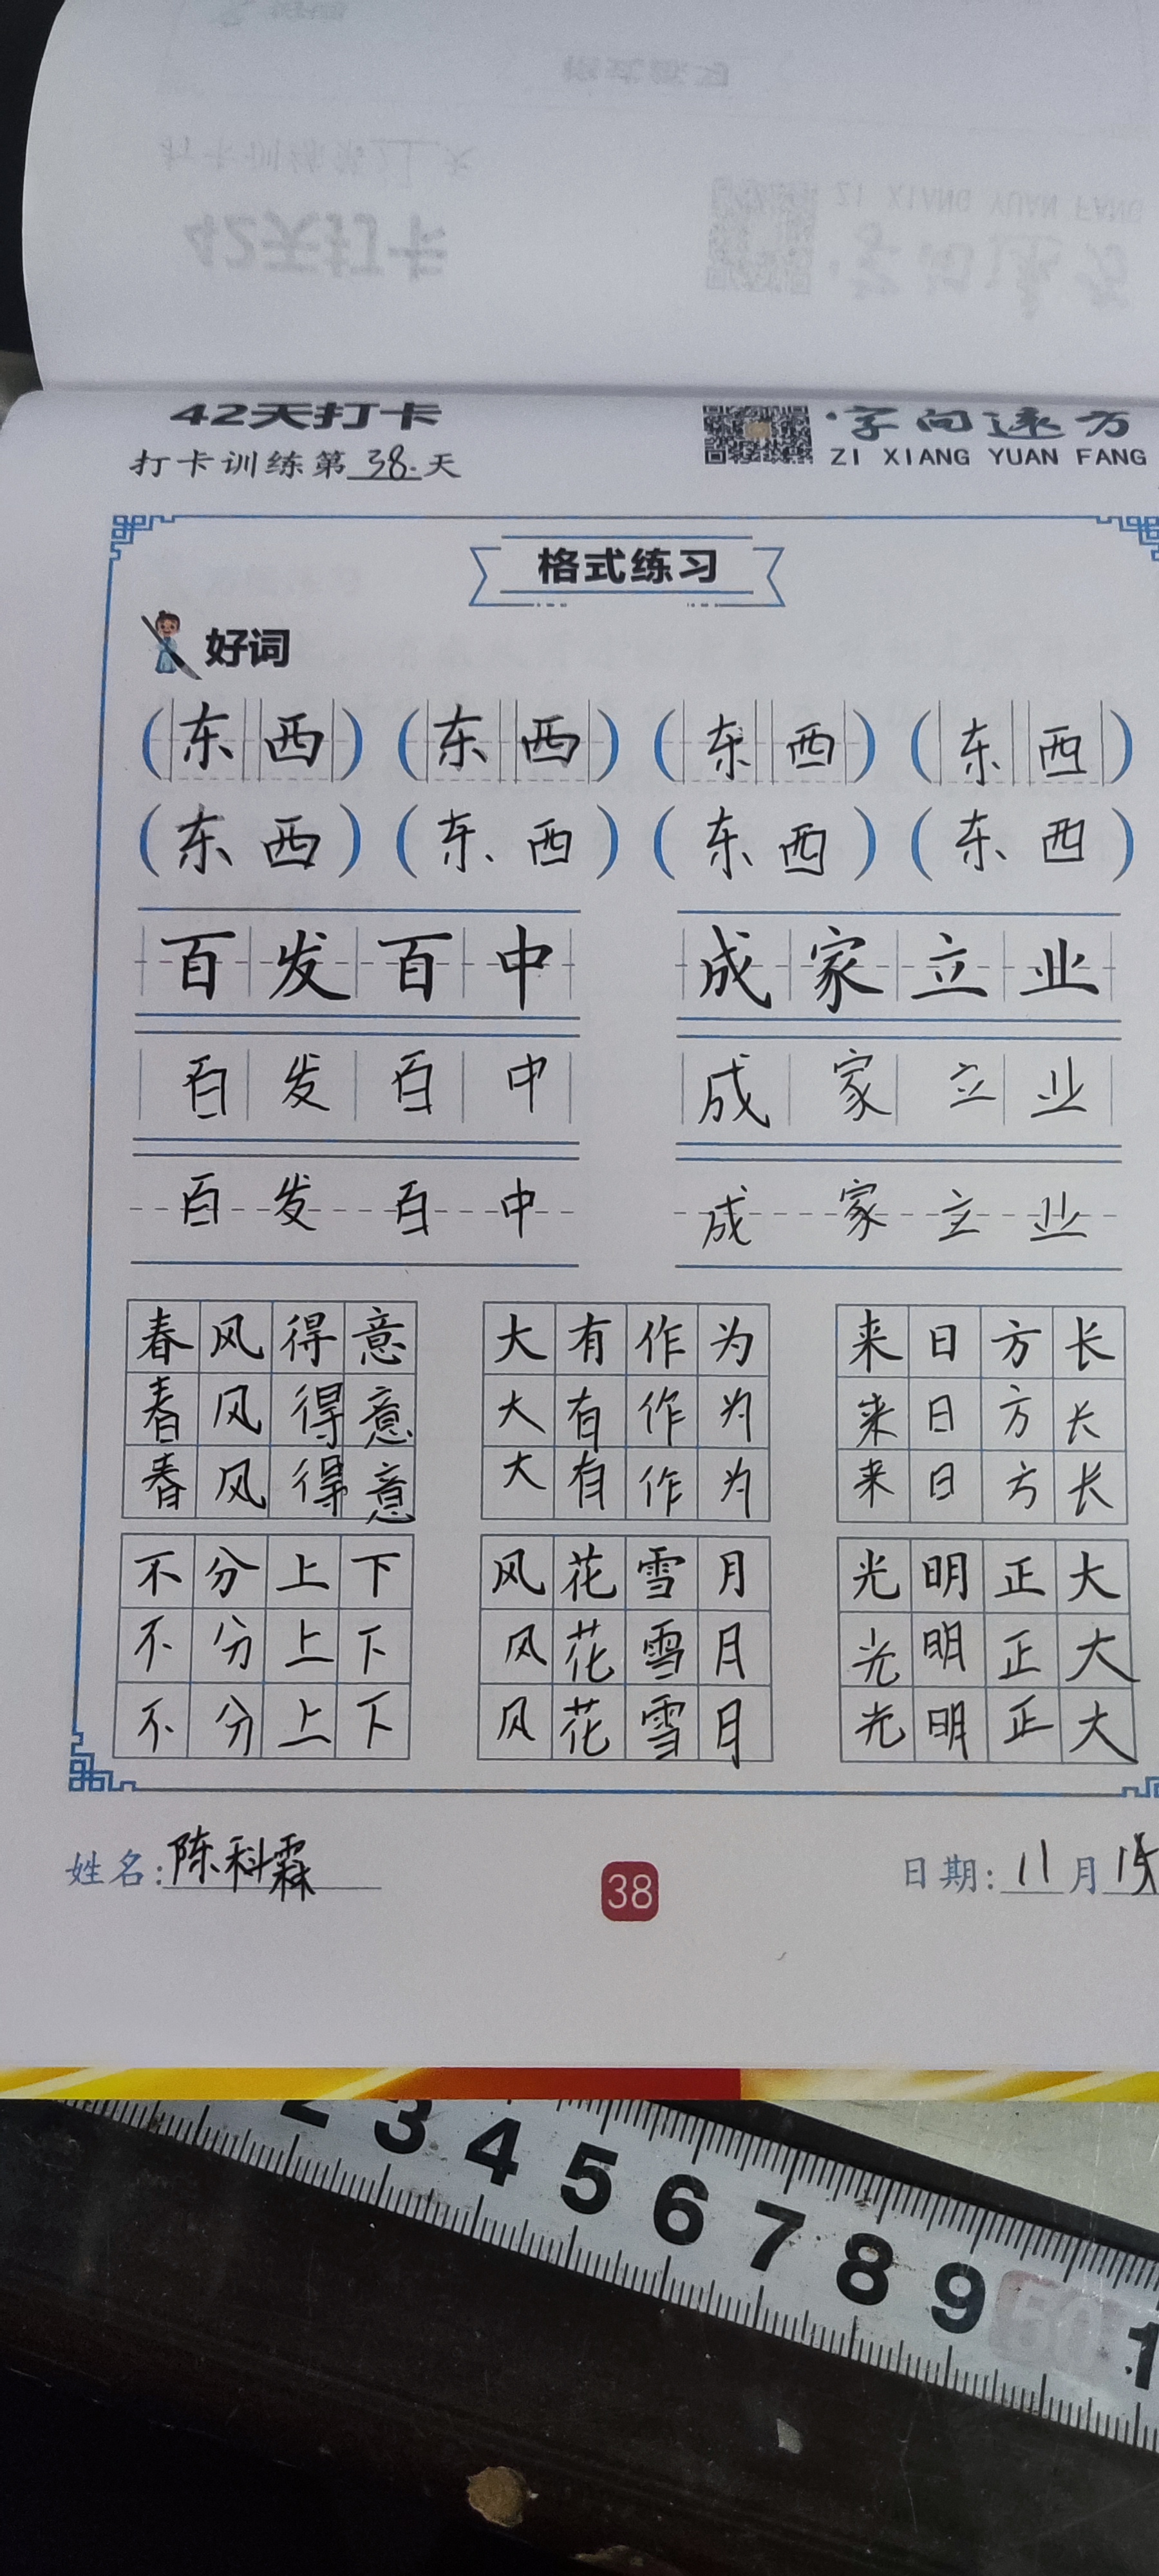 42天打卡
打卡训练第38.天
·字向远方
ZI XIANG YUAN FANG
格式练习
好词
(东西) (东西) (东西) (东西)
(东西) (东西) (东西) (东西)
百发百中 成家立业
百发百中 成家立业
百发百中 成家立业
春风得意 大有作为 来日方长
春风得意 大有作为 来日方长
春风得意 大有作为 来日方长
不分上下 风花雪月 光明正大
不分上下 风花雪月 光明正大
不分上下 风花雪月 光明正大
姓名:陈科霖
38
日期:11月
2 3 4 5 6 7 8 9 1
50